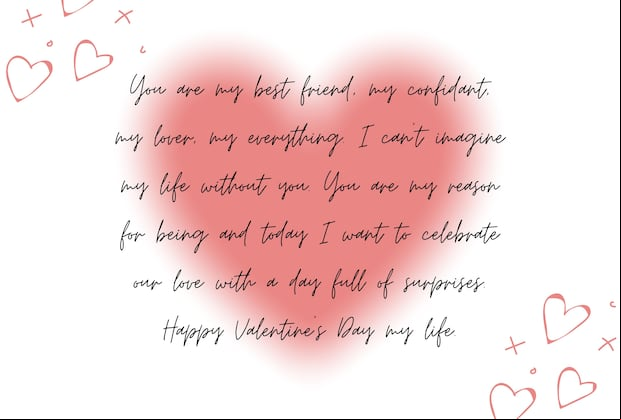 You are my best friend, my confidant,
my lover, my everything. I can't imagine
my life without you. You are my reason
for being and today I want to celebrate
our love with a day full of surprises.
Happy Valentine's Day my life.